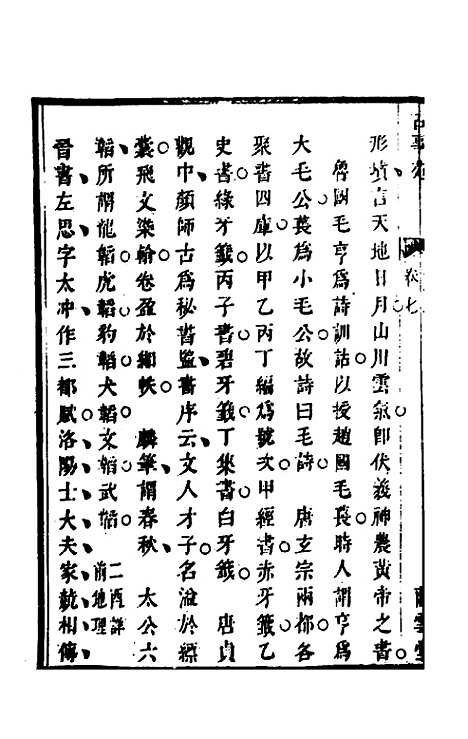 卷七
形墳言天地日月山川雲氣卽伏羲神農黃帝之書
魯國毛亨爲詩訓詁以授趙國毛萇時人謂亨爲
大毛公萇爲小毛公故詩曰毛詩　唐玄宗兩都各
聚書四庫以甲乙丙丁編爲號次甲經書赤牙籤乙
史書綠牙籤丙子書碧牙籤丁集書白牙籤　唐貞
觀中顏師古爲秘書監書序云文人才子名溢於縹
囊飛文染翰卷盈於緗帙　麟筆謂春秋　太公六
韜所謂龍韜虎韜豹韜犬韜文韜武韜　二酉詳前地理
晉書左思字太冲作三都賦洛陽士大夫家競相傳